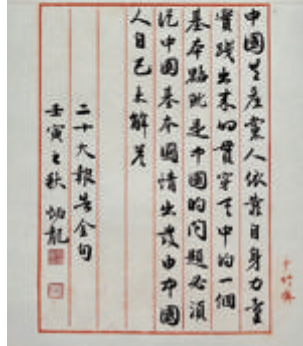 中國共產黨人依靠自身力量
實踐出來的貫穿其中的一個
基本點就是中國的問題必須
從中國基本國情出發由中國
人自己來解答
二十大報告金句
壬寅之秋 炳龍